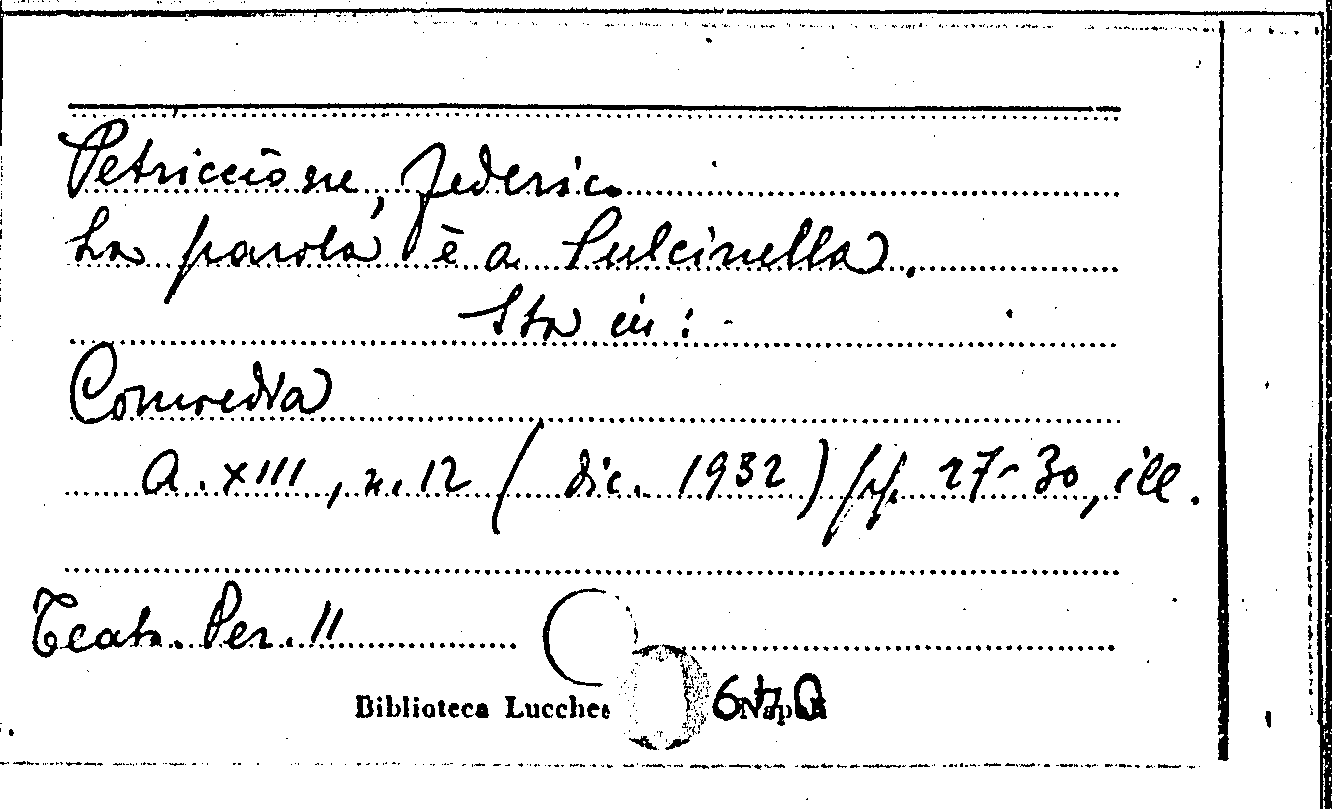 Petriccione, Federico
La parola è a Pulcinella.
Sta in:
Comoedia
A. XIII, n. 12 (dic. 1932) pp. 27-30, ill.
Teatr. Per. 11
Biblioteca Lucchesi